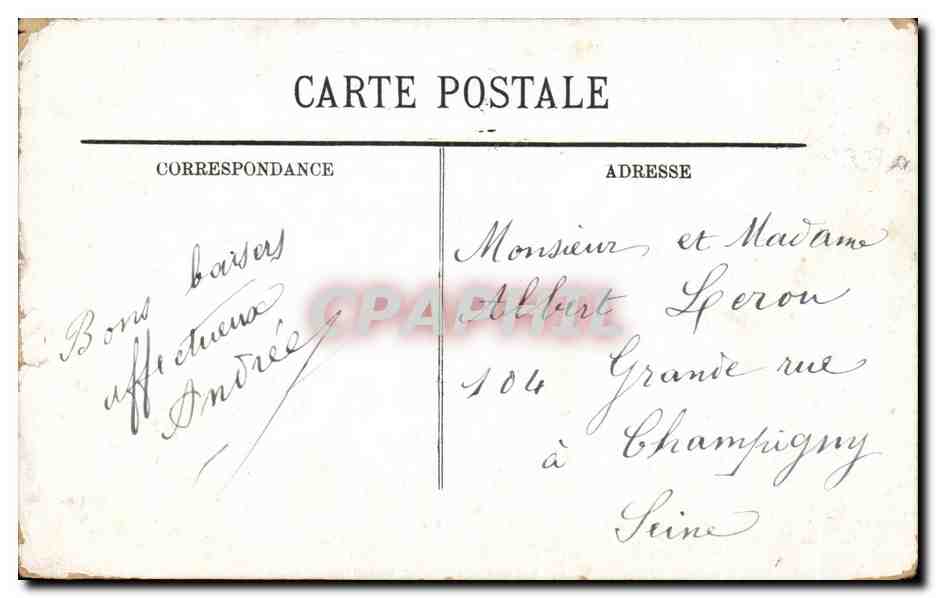 CARTE POSTALE
CORRESPONDANCE
ADRESSE
Bons baisers
affectueux
Andrée
Monsieur et Madame
Albert Leron
104 Grande rue
à Champigny
Seine
CPAPHIL